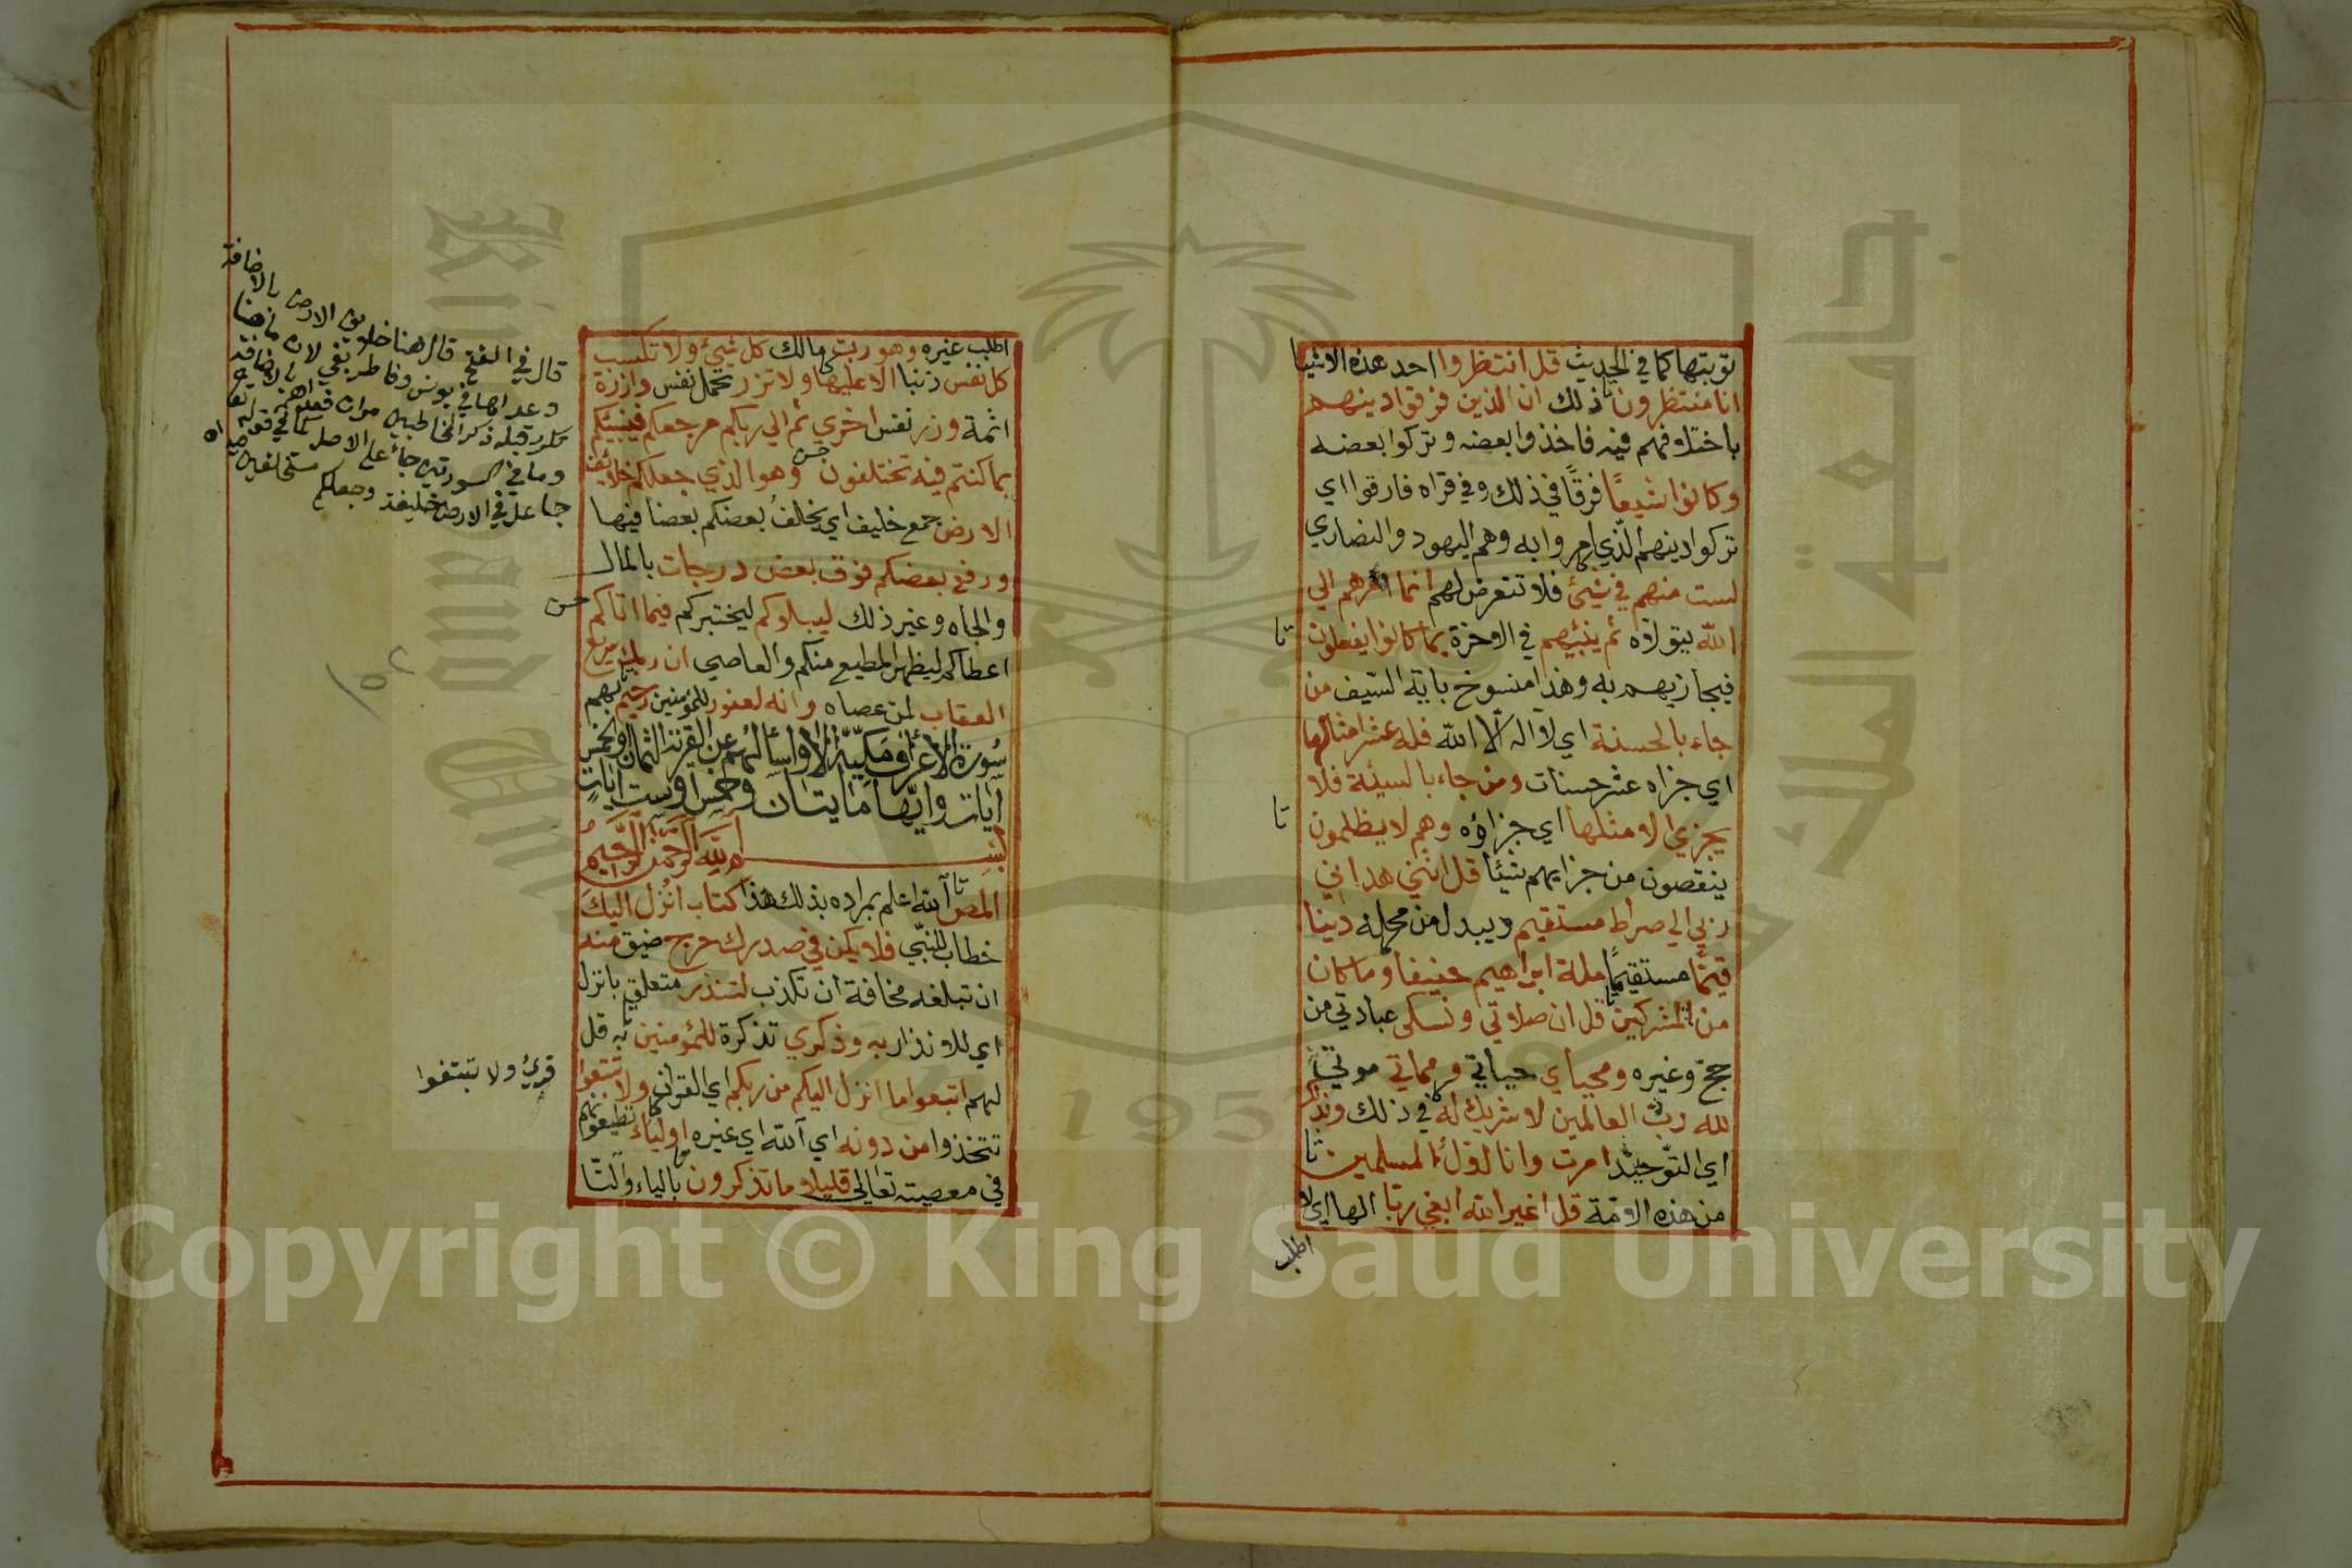 توبتها كما في الحديث قل انتظروا احد هذه الاشيا
انا منتظرون ذلك ان الذين فرقوا دينهم
باختلافهم فيه فاخذوا بعضه وتركوا بعضه
وكانوا شيعًا فرقًا في ذلك وفي قراه فارقوا اي
تركوا دينهم الذي امروا به وهم اليهود والنصاري
لست منهم في شيئ فلا تتعرض لهم انما امرهم الي
الله يتولاه ثم ينبئهم في الاخرة بما كانوا يفعلون
تا
فيجازيهم به وهذا منسوخ باية السيف من
جاء بالحسنة اي لا اله الا الله فله عشر امثالها
اي جزاه عشر حسنات ومن جاء بالسيئة فلا
تا
يجزي الا مثلها اي جزاؤه وهم لا يظلمون
ينقصون من جزايهم شيئا قل انني هداني
ربي الي صراط مستقيم ويبدل من محله دينا
قيمًا مستقيمًا ملة ابراهيم حنيفا وما كان
من المشركين قل ان صلاتي ونسكى عبادتي من
حج وغيره ومحياي حياتي ومماتي موتي
لله رب العالمين لا شريك له في ذلك وبذلك
اي التوحيد امرت وانا اول المسلمين
من هذه الامة قل اغير الله ابغي ربا الها اي لا
اطلب
اطلب غيره وهو رب مالك كل شيئ ولا تكسب
كل نفس ذنبا الا عليها ولا تزر تحمل نفس وازرة
اثمة وزر نفس اخري ثم الي ربكم مرجعكم فينبئكم
بما كنتم فيه تختلفون وهو الذي جعلكم خلائف
الارض جمع خليف اي يخلف بعضكم بعضا فيها
ورفع بعضكم فوق بعض درجات بالمال
والجاه وغير ذلك ليبلوكم ليختبركم فيما اتاكم
اعطاكم ليظهر المطيع منكم والعاصي ان ربك سريع
العقاب لمن عصاه وانه لغفور للمؤمنين رحيم بهم
سورة الأعراف مكية الا واسألهم عن القرية الثمان او الخمس
آيات وايها مايتان وخمس او ست ايات
بسم الله الرحمن الرحيم
المص الله اعلم بمراده بذلك هذا كتاب انزل اليك
خطاب للنبي فلا يكن في صدرك حرج ضيق منه
ان تبلغه مخافة ان تكذب لتنذر متعلق بانزل
اي للانذار به وذكري تذكرة للمؤمنين به قل
لهم اتبعوا ما انزل اليكم من ربكم اي القران ولا تتبعوا
تتخذوا من دونه اي الله اي غيره اولياء تطيعونهم
في معصيته تعالي قليلا ما تذكرون بالياء والتا
قال في الفتح قال هنا خلايف الارض بالاضافة
وعداها في يونس وفاطر بفي لان ما هنا
تكرر قبله ذكر المخاطبين مرات فعرفهم بالاضافة
وما في السورتين جاء على الاصل كما في قوله
جاعل في الارض خليفة وجعلكم مستخلفين
حسن
١٥٢
قرئ ولا تبتغوا
Copyright © King Saud University
جامعة الملك
1957